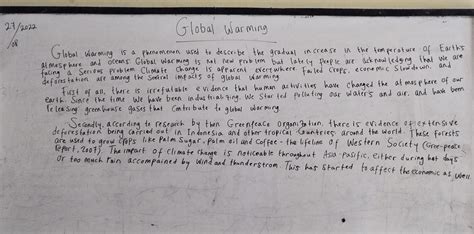 27/2022
/08
Global Warming
Global Warming is a phenomenon used to describe the gradual increase in the temperature of Earth's
atmosphere and oceans. Global Warming is not new problem but lately people are acknowledging that we are
facing a Serious Problem. Climate Change is apparent everywhere. Failed Crops, economic Slowdown, and
deforestation are among the Several impacts of global warming.
First of all, there is irrefutable evidence that human activities have changed the atmosphere of our
earth. Since the time we have been industrializing. We started Polluting our water's and air, and have been
releasing greenhouse gases that Contribute to global warming.
Secondly, according to research by two Greenpeace Organization, there is evidence of extensive
deforestation being carried out in Indonesia and other tropical Countries around the world. These forests
are used to grow Crops like Palm Sugar, Palm oil and Coffee - the lifeline of Western Society (Green-peace
Report, 2007). The impact of climate Change is noticeable throughout Asia-Pasific, either during hot days
or too much rain accompained by wind and thunderstrom. This has started to affect the economic as well.